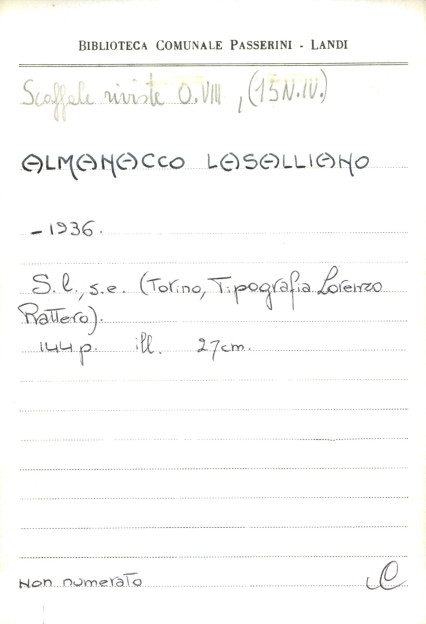 BIBLIOTECA COMUNALE PASSERINI - LANDI
Scaffale riviste O.VIII, (15 N.IV.)
ALMANACCO LASALLIANO
- 1936.
S.l., s.e. (Torino, Tipografia Lorenzo
Rattero).
144 p. ill. 27cm.
Non numerato